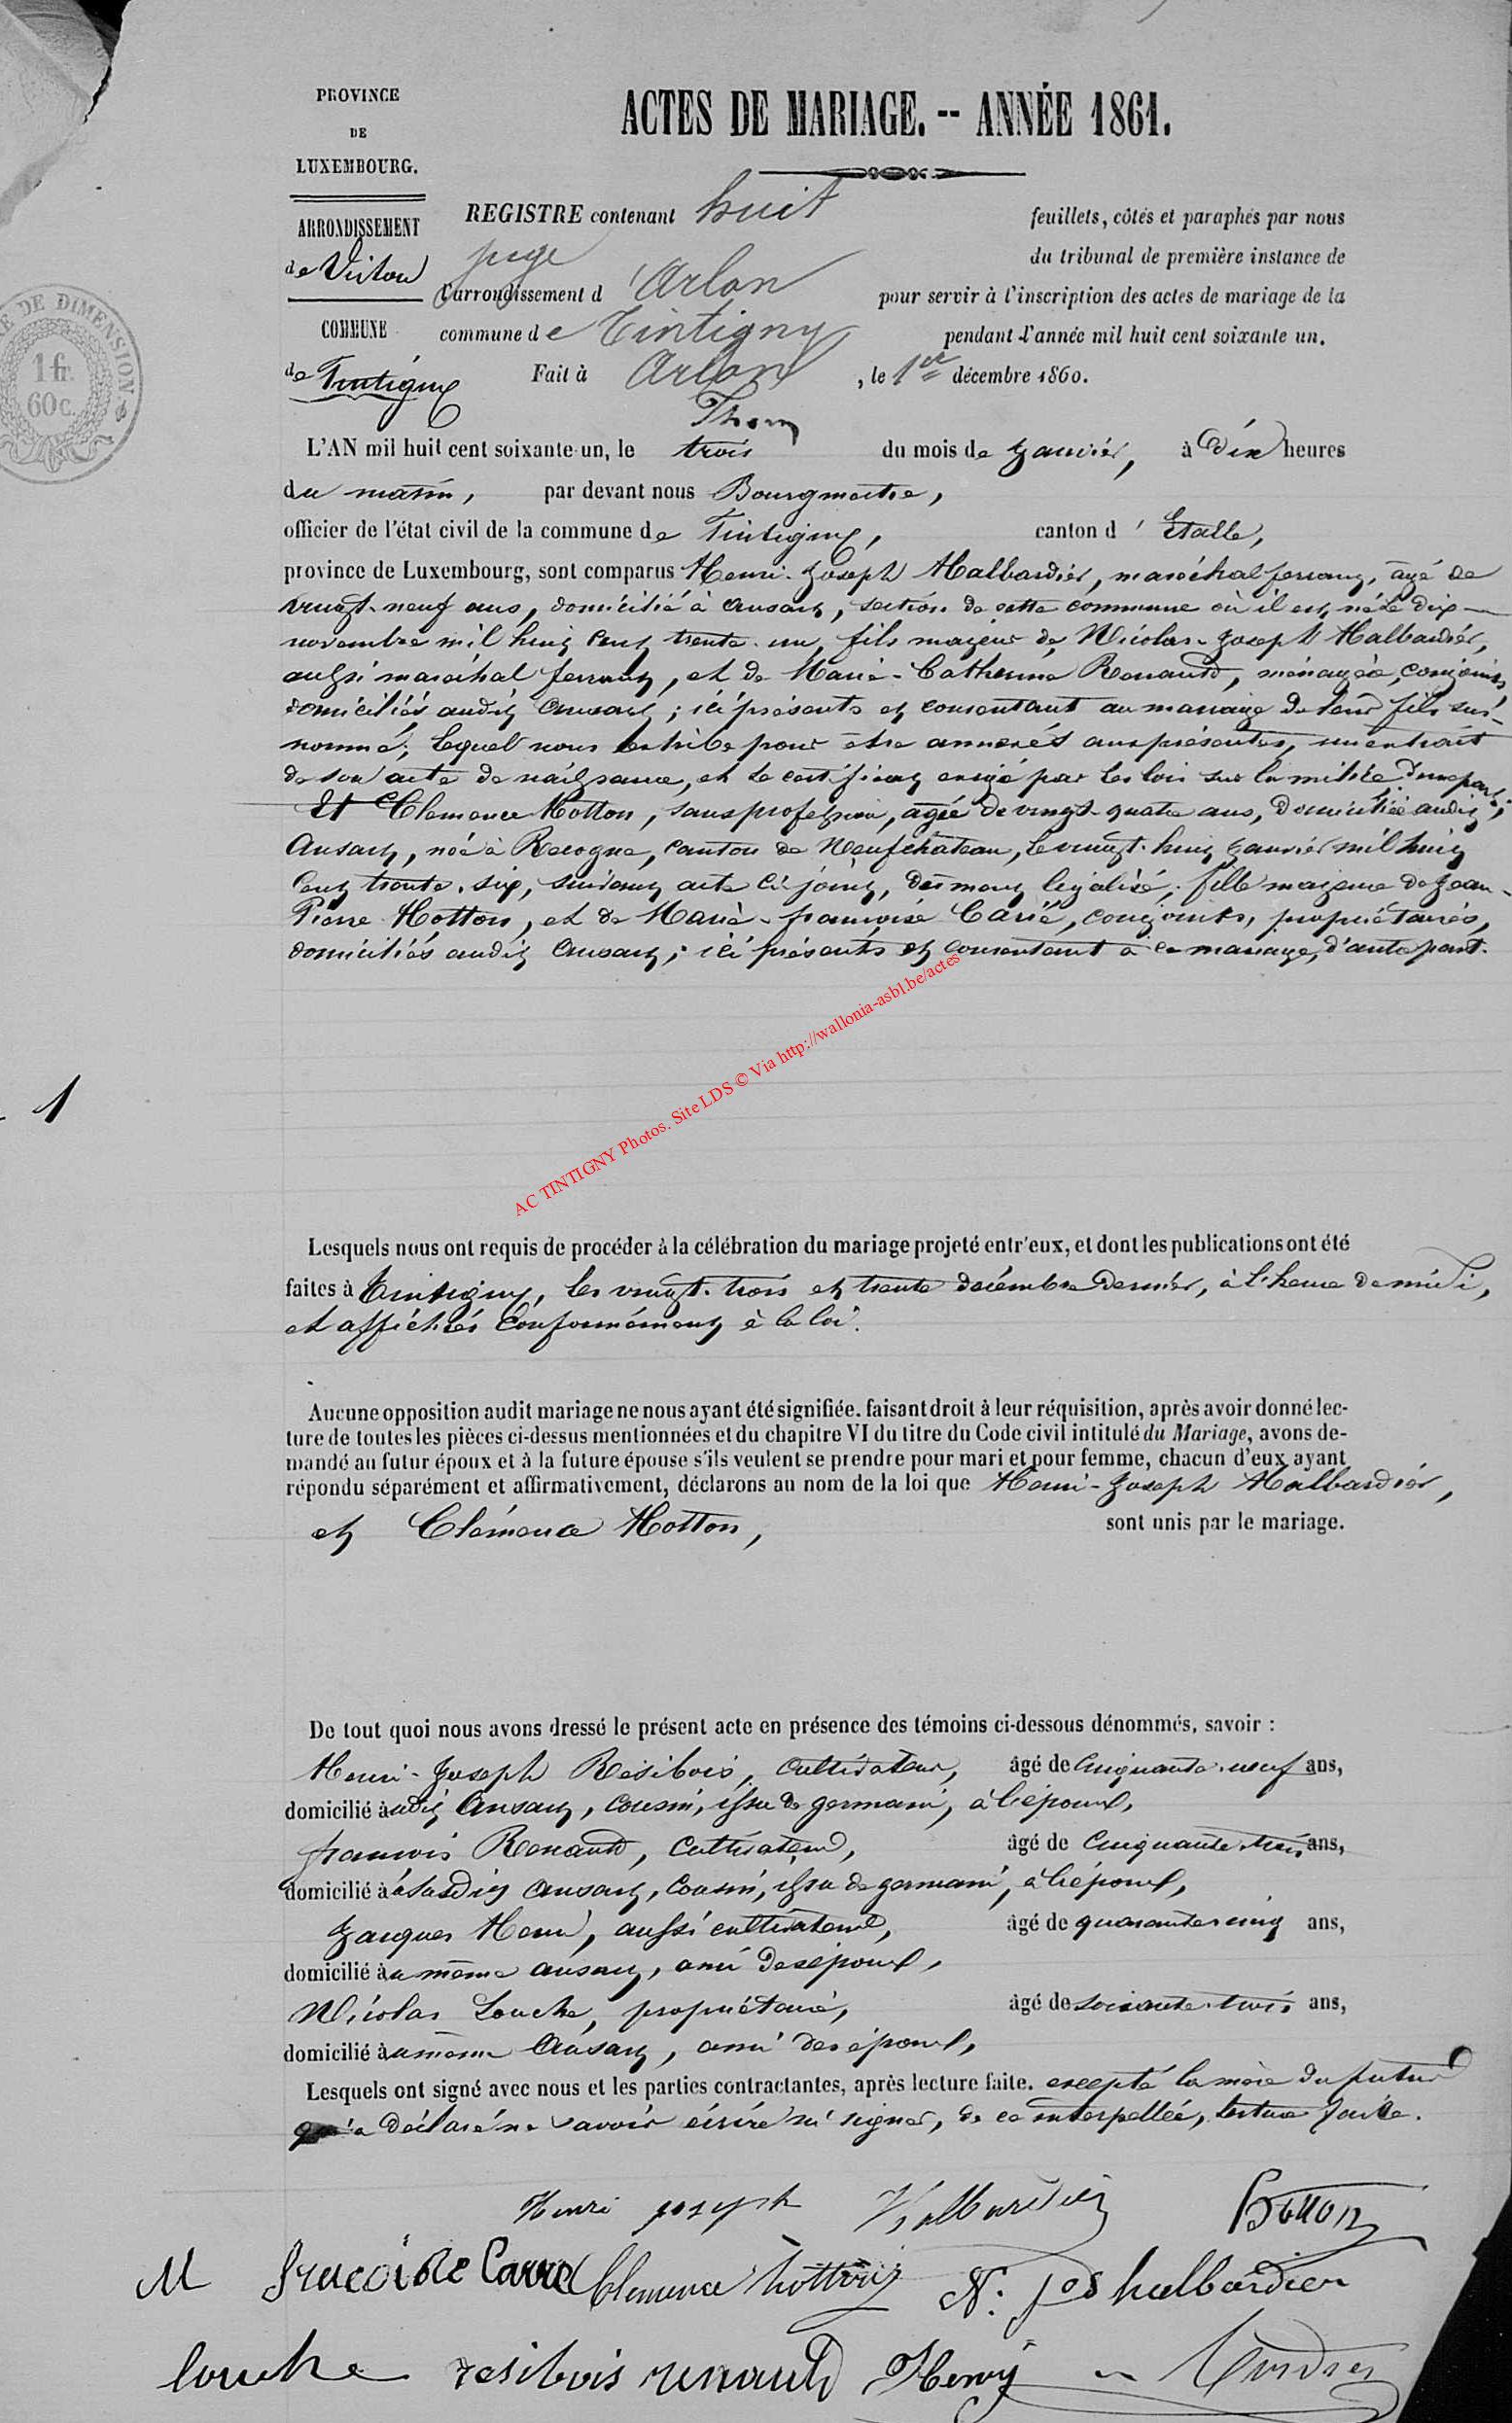 PROVINCE
DE
LUXEMBOURG.
ARRONDISSEMENT
de Virton
COMMUNE
de Tintigny
ACTES DE MARIAGE. -- ANNÉE 1861.
REGISTRE contenant huit feuillets, côtés et paraphés par nous
juge du tribunal de première instance de
l'arrondissement d Arlon pour servir à l'inscription des actes de mariage de la
commune de Tintigny pendant l'année mil huit cent soixante un.
Fait à Arlon, le 1er décembre 1860.
DE DIMENSION
1 fr.
60 c.
L'AN mil huit cent soixante-un, le trois du mois de Janvier, à dix heures
du matin, par devant nous Bourgmestre,
officier de l'état civil de la commune de Tintigny, canton d'Etalle,
province de Luxembourg, sont comparus Henri-Joseph Halbardier, maréchal ferrant, âgé de
vingt-neuf ans, domicilié à Ansart, section de cette commune où il est né le dix
novembre mil huit cent trente-un, fils majeur de Nicolas-Joseph Halbardier,
aussi maréchal ferrant, et de Marie-Catherine Renauld, ménagère, conjoints
domiciliés audit Ansart; ici présents et consentant au mariage de leur fils sus-
nommé; lequel nous pour être annexés aux présentes, un extrait
de son acte de naissance, et le certificat exigé par les lois sur la milice d'une part;
Et Clemence Hotton, sans profession, agée de vingt-quatre ans, domiciliée audit
Ansart, née à Recogne, canton de Neufchâteau, le vingt-huit Janvier mil huit
cent trente-six, suivant acte ci-joint, dûment légalisé, fille majeure de Jean-
Pierre Hotton, et de Marie-françoise Carié, conjoints, propriétaires,
domiciliés audit Ansart; ici présents et consentant à ce mariage, d'autre part.
AC TINTIGNY Photos. Site LDS © Via http://wallonia-asbl.be/actes
1
Lesquels nous ont requis de procéder à la célébration du mariage projeté entr'eux, et dont les publications ont été
faites à Tintigny, les vingt-trois et trente décembre dernier, à l'heure de midi,
et affichées conformément à la loi.
Aucune opposition audit mariage ne nous ayant été signifiée. faisant droit à leur réquisition, après avoir donné lec-
ture de toutes les pièces ci-dessus mentionnées et du chapitre VI du titre du Code civil intitulé du Mariage, avons de-
mandé au futur époux et à la future épouse s'ils veulent se prendre pour mari et pour femme, chacun d'eux ayant
répondu séparément et affirmativement, déclarons au nom de la loi que Henri-Joseph Halbardier,
et Clémence Hotton, sont unis par le mariage.
De tout quoi nous avons dressé le présent acte en présence des témoins ci-dessous dénommés, savoir :
Henri-Joseph Résibois, cultivateur, âgé de cinquante-neuf ans,
domicilié audit Ansart, cousin, issu de germain, à l'époux,
françois Renauld, cultivateur, âgé de cinquante-trois ans,
domicilié à susdit Ansart, cousin, issu de germain, à l'époux,
Jacques Henri, aussi cultivateur, âgé de quarante-cinq ans,
domicilié au même Ansart, ami des époux,
Nicolas Louche, propriétaire, âgé de soixante-trois ans,
domicilié au même Ansart, ami des époux,
Lesquels ont signé avec nous et les parties contractantes, après lecture faite. excepté la mère du futur
qui a déclaré ne savoir écrire ni signer, de ce interpellée, lecture faite.
Henri joseph halbardier Hotton
M françoise Carré Clemence hotton N. jos halbardier
louche resibois renauld Henry